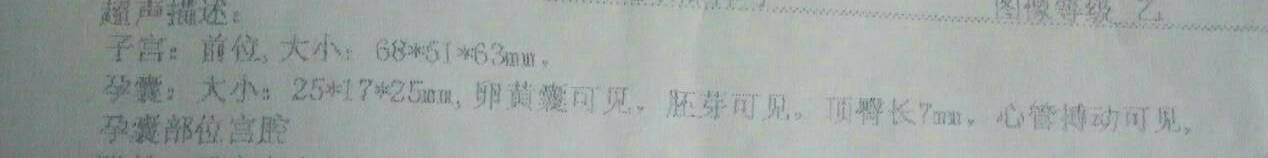 图像等级 乙
超声描述：
子宫：前位，大小：68*51*63mm。
孕囊：大小：25*17*25mm，卵黄囊可见。胚芽可见。顶臀长7mm，心管搏动可见，
孕囊部位宫腔